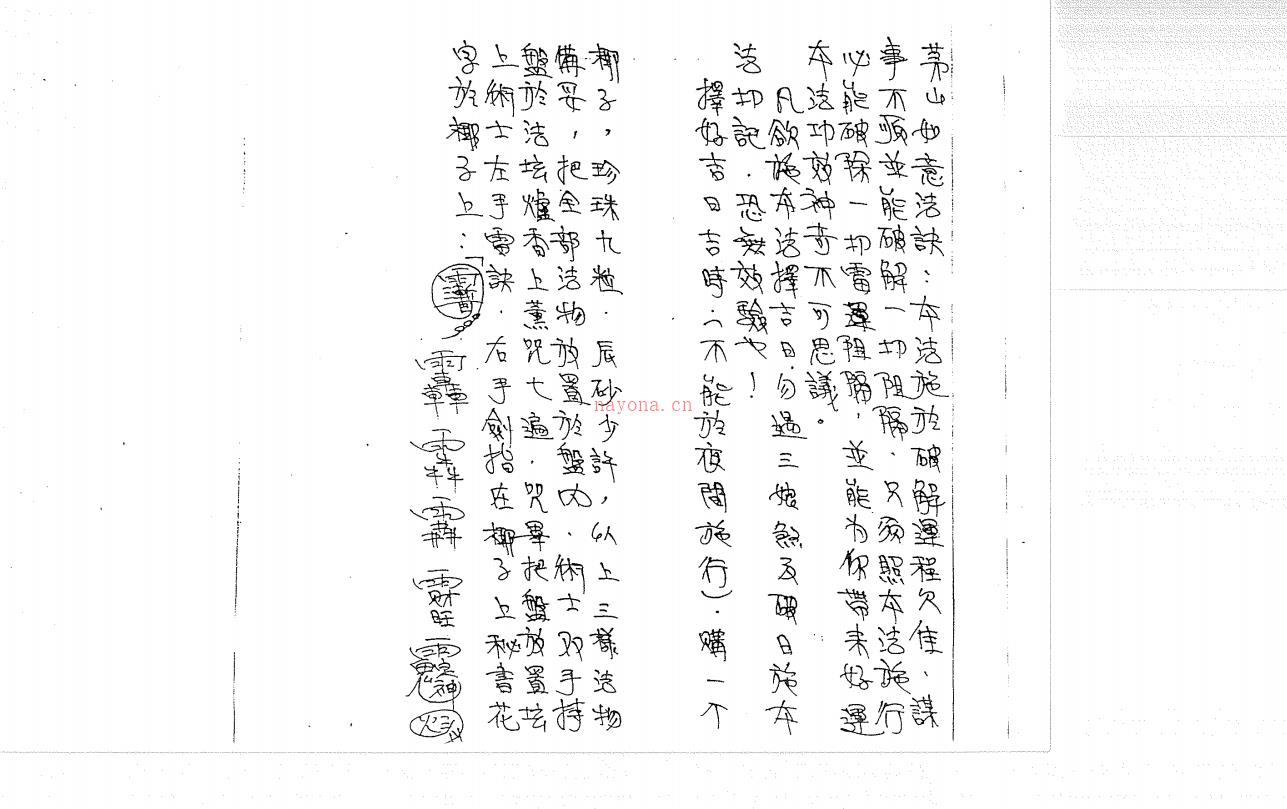 茅山如意法訣：本法施於破解運程欠佳、謀
事不順並能破解一切阻隔．只須照本法施行
必能破除一切雷運阻隔，並能为你帶来好運
本法功效神奇不可思議。
凡欲施本法擇吉日，勿過三娘煞及破日施本
法切記．恐無效驗也！
擇好吉日吉時．（不能於夜間施行）．購一个
椰子，珍珠九粒．辰砂少許，以上三樣法物
備妥，把全部法物放置於盤内．術士双手持
盤於法坛爐香上薰咒七遍．咒畢把盤放置坛
上術士左手雷訣．右手劍指在椰子上秘書花
字於椰子上：「
nayona.cn